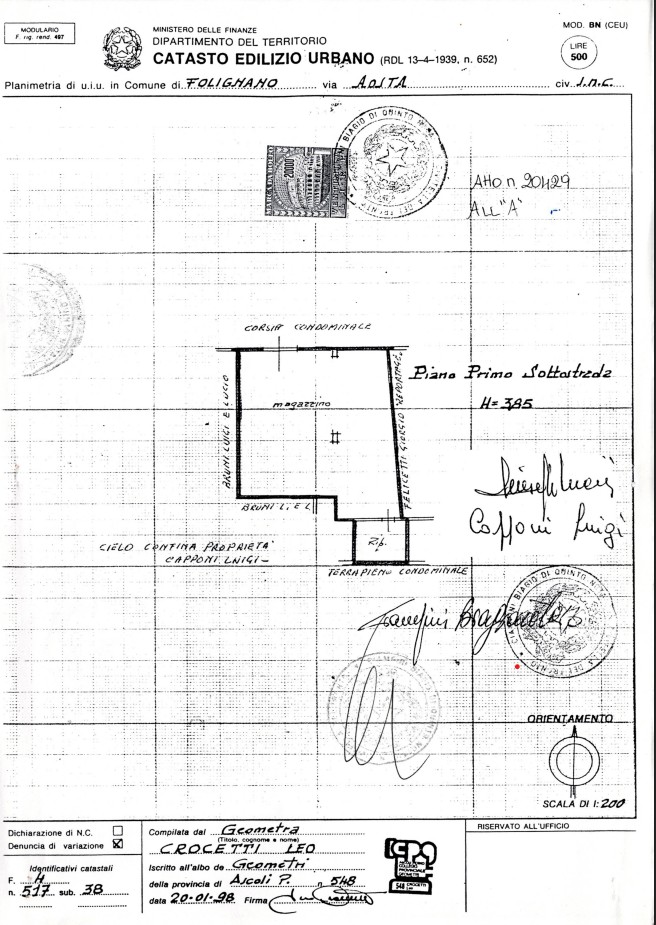 MODULARIO
F. rig. rend. 497
MOD. BN (CEU)
MINISTERO DELLE FINANZE
DIPARTIMENTO DEL TERRITORIO
CATASTO EDILIZIO URBANO (RDL 13-4-1939, n. 652)
LIRE
500
Planimetria di u.i.u. in Comune di FOLIGNANO via AOSTA civ. s.n.c.
20000
BIAGIO DI QUINTO
Atto n. 20429
ALL "A"
CORSIA CONDOMINALE
Piano Primo Sottostrada
H= 3,85
magazzino
BRUNI LUIGI E LUCIO
FELICETTI GIORGIO REPORTAGE
BRUNI L. E L.
Rip.
CIELO CONTINA PROPRIETA'
CAPPONI LUIGI-
TERRAPIENO CONDOMINALE
Capponi Luigi
BIAGIO DI QUINTO
ORIENTAMENTO
SCALA DI 1: 200
Dichiarazione di N.C.
Denuncia di variazione
Identificativi catastali
F. 4
n. 517 sub. 38
Compilata dal Geometra
(Titolo, cognome e nome)
CROCETTI LEO
Iscritto all'albo de Geometri
della provincia di Ascoli P. n 548
data 20-01-98 Firma
548 CROCETTI
LEO
RISERVATO ALL'UFFICIO